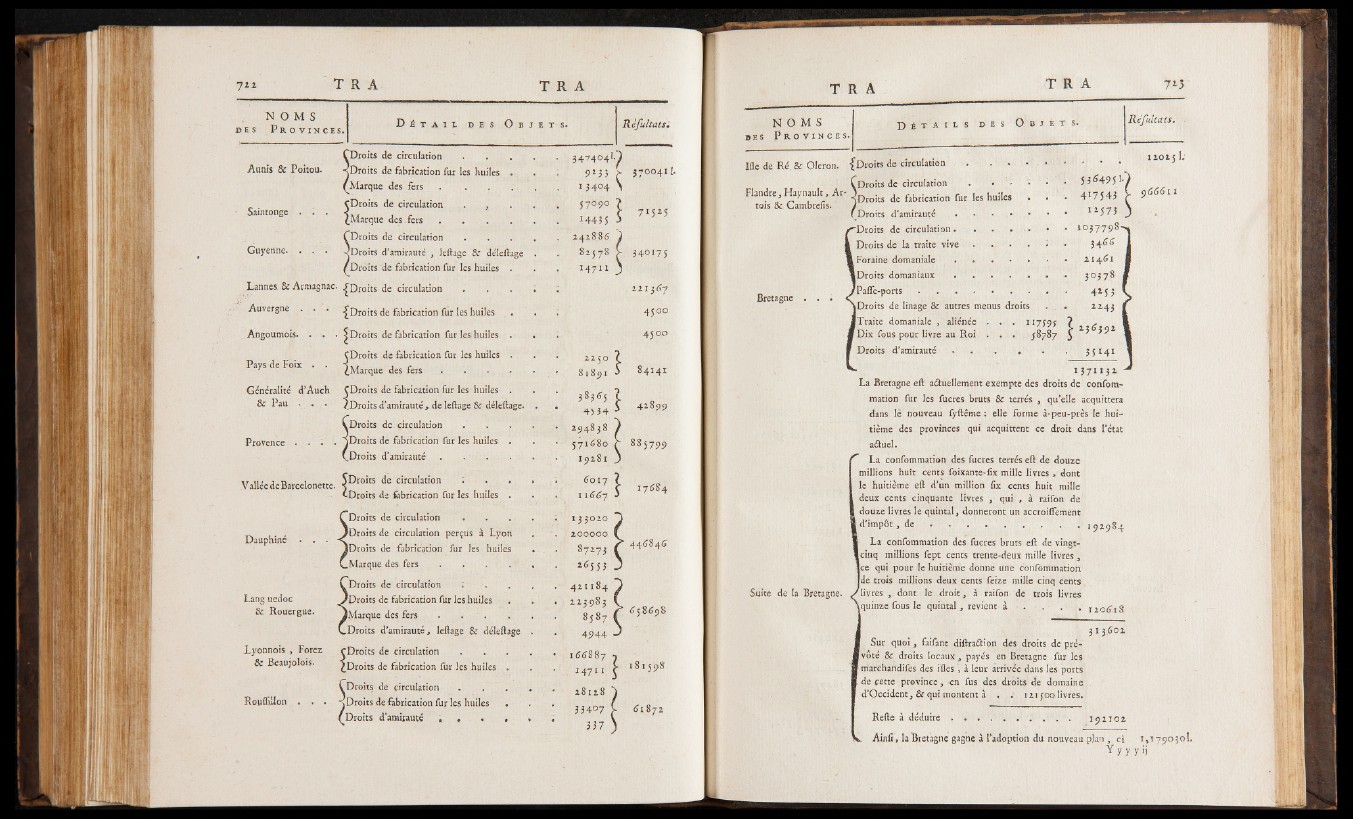 722 TRA TRA
NOMS DES PROVINCES. DÉTAIL DES OBJETS. Réſultats.
Aunis & Poitou.
Droits de circulation . . . . . 347404 l.
Droits de fabrication ſur les huiles . . . 9233
Marque des fers . . . . . . 13404
370041 l.
Saintonge . . .
Droits de circulation . . . . . 57090
Marque des fers . . . . . . 14435
71525
Guyenne. . . .
Droits de circulation . . . . . 242886
Droits d'amirauté , leſtage & déleſtage . . 82578
Droits de fabrication ſur les huiles . . . 14711
340175
Lannes & Armagnac. Droits de circulation . . . . . 221367
Auvergne . . . Droits de fabrication ſur les huiles . . . 4500
Angoumois. . . . Droits de fabrication ſur les huiles . . . 4500
Pays de Foix . .
Droits de fabrication ſur les huiles . . . 2250
Marque des fers . . . . . . 81891
84141
Généralité d'Auch
& Pau . . .
Droits de fabrication ſur les huiles . . . 38365
Droits d'amirauté, de leſtage & déleſtage. . . 4534
42899
Provence . . . .
Droits de circulation . . . . . 294838
Droits de fabrication ſur les huiles . . . 571680
Droits d'amirauté . . . . . . 19281
885799
Vallée de Barcelonette.
Droits de circulation . . . . . 6017
Droits de fabrication ſur les huiles . . . 11667
17684
Dauphiné . . .
Droits de circulation . . . . . 133020
Droits de circulation perçus à Lyon . . 200000
Droits de fabrication ſur les huiles . . 87273
Marque des fers . . . . . 26553
446846
Languedoc
& Rouergue.
Droits de circulation . . . . . 421184
Droits de fabrication ſur les huiles . . . 223983
Marque des fers . . . . . . 8587
Droits d'amirauté, leſtage & déleſtage . . 4944
658698
Lyonnois , Forez
& Beaujolois.
Droits de circulation . . . . . 166887
Droits de fabrication ſur les huiles . . . 14711
181598
Rouſſillon . . .
Droits de circulation . . . . . 28128
Droits de fabrication ſur les huiles . . . 33407
Droits d'amirauté . . . . . . 337
61872
TRA TRA 723
NOMS DES PROVINCES. DÉTAILS DES OBJETS. Réſultats.
Iſle de Ré & Oleron. Droits de circulation . . . . . . . 12025 l.
Flandre, Haynault, Ar-
tois & Cambreſis.
Droits de circulation . . . . . . 536495 l.
Droits de fabrication ſur les huiles . . . 417543
Droits d'amirauté . . . . . . 12573
966611
Bretagne . . .
Droits de circulation . . . . . . 1037798
Droits de la traite vive . . . . . . 3466
Foraine domaniale . . . . . . . 21461
Droits domaniaux . . . . . . 30378
Paſſe-ports . . . . . . . 4253
Droits de linage & autres menus droits . . 2243
Traite domaniale , aliénée . . . 117595
Dix ſous pour livre au Roi . . . 58787
236392
Droits d'amirauté . . . . . . 35141
1371132
La Bretagne eſt actuellement exempte des droits de conſom-
mation ſur les ſucres bruts & terrés , qu'elle acquittera
dans le nouveau ſyſtême : elle forme à-peu-près le hui-
tième des provinces qui acquittent ce droit dans l'état
actuel.
Suite de la Bretagne.
La conſommation des ſucres terrés eſt de douze
millions huit cents ſoixante-ſix mille livres , dont
le huitième eſt d'un million ſix cents huit mille
deux cents cinquante livres , qui , à raiſon de
douze livres le quintal, donneront un accroiſſement
d'impôt , de . . . . . . . . . 192984
La conſommation des ſucres bruts eſt de vingt-
cinq millions ſept cents trente-deux mille livres ,
ce qui pour le huitième donne une conſommation
de trois millions deux cents ſeize mille cinq cents
livres , dont le droit, à raiſon de trois livres
quinze ſous le quintal , revient à . . . . 120618
313602
Sur quoi, faiſant diſtraction des droits de pré-
vôté & droits locaux , payés en Bretagne ſur les
marchandiſes des iſles , à leur arrivée dans les ports
de cette province , en ſus des droits de domaine
d'Occident, & qui montent à . . 121500 livres.
Reſte à déduire . . . . . . . . . 192102
Ainſi, la Bretagne gagne à l'adoption du nouveau plan , ci 1,179030 l.
Y y y y ij